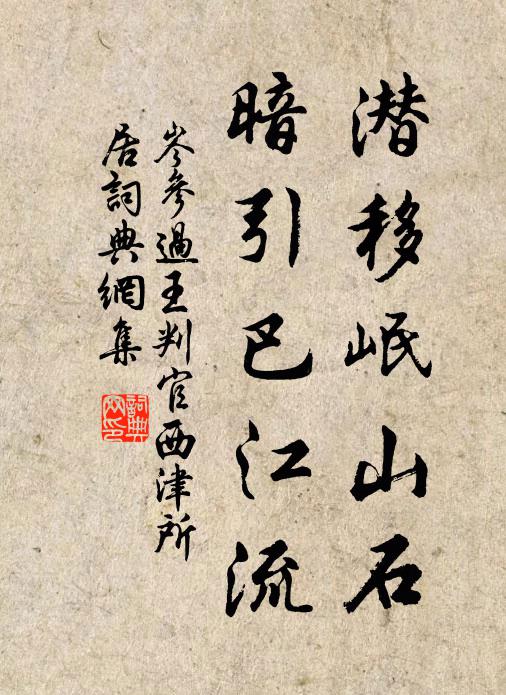 潜移岷山石
暗引巴江流
岑参過王判官西津所
居詞典網集
詞典網印